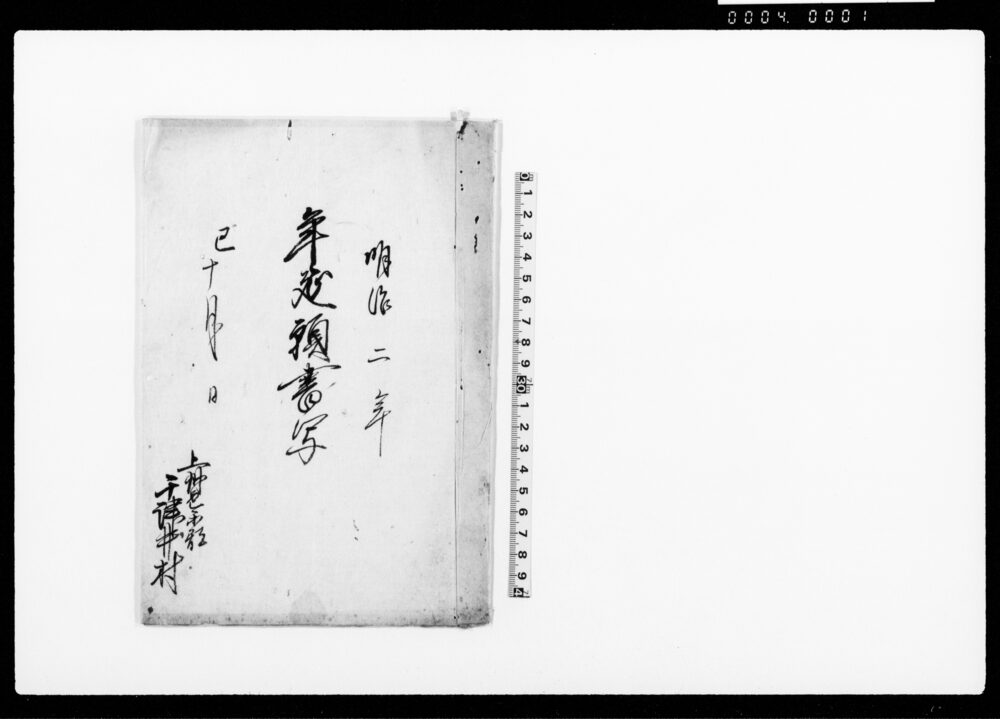 0004. 0001
明治二年
年延願書写
巳十月日
千津井村
0 1 2 3 4 5 6 7 8 9 30 1 2 3 4 5 6 7 8 9